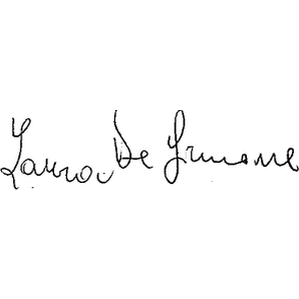 Laura De Simone